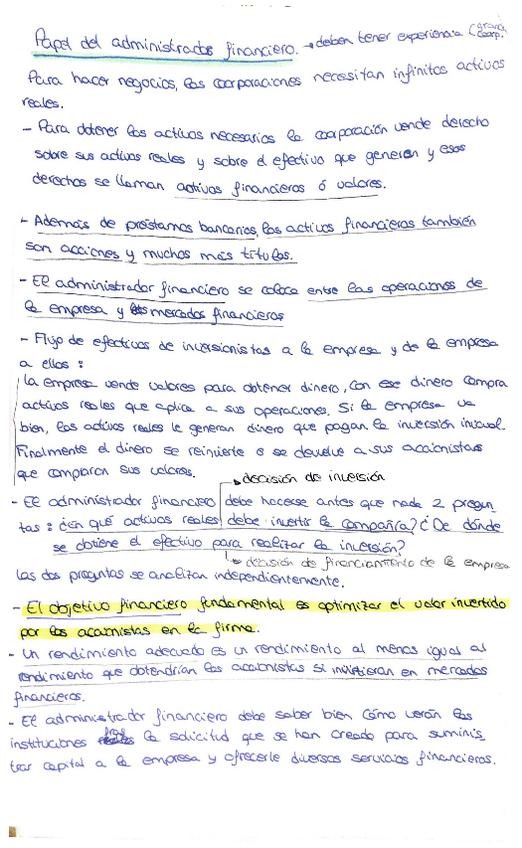 Papel del administrador financiero. → deben tener experiencia (grandes corp.
Para hacer negocios, las corporaciones necesitan infinitos activos
reales.
- Para obtener los activos necesarios la corporación vende derecho
sobre sus activos reales y sobre el efectivo que generen y esos
derechos se llaman activos financieros ó valores.
- Además de préstamos bancarios, los activos financieros también
son acciones y muchos más títulos.
- El administrador financiero se coloca entre las operaciones de
la empresa y los mercados financieros
- Flujo de efectivos de inversionistas a la empresa y de la empresa
a ellos :
la empresa vende valores para obtener dinero, con ese dinero compra
activos reales que aplica a sus operaciones. Si la empresa va
bien, los activos reales le generan dinero que pagan la inversión inicial.
Finalmente el dinero se reinvierte o se devuelve a sus accionistas
que compraron sus valores.
→ decisión de inversión
- El administrador financiero debe hacerse antes que nada 2 pregun
tas : ¿en qué activos reales debe invertir la compañía? ¿De dónde
se obtiene el efectivo para realizar la inversión?
→ decisión de financiamiento de la empresa
las dos preguntas se analizan independientemente.
- El objetivo financiero fundamental es optimizar el valor invertido
por los accionistas en la firma.
- Un rendimiento adecuado es un rendimiento al menos igual al
rendimiento que obtendrían los accionistas si invirtieran en mercados
financieros.
- El administrador financiero debe saber bien cómo verán las
instituciones la solicitud que se han creado para suminis
trar capital a la empresa y ofrecerle diversos servicios financieros.